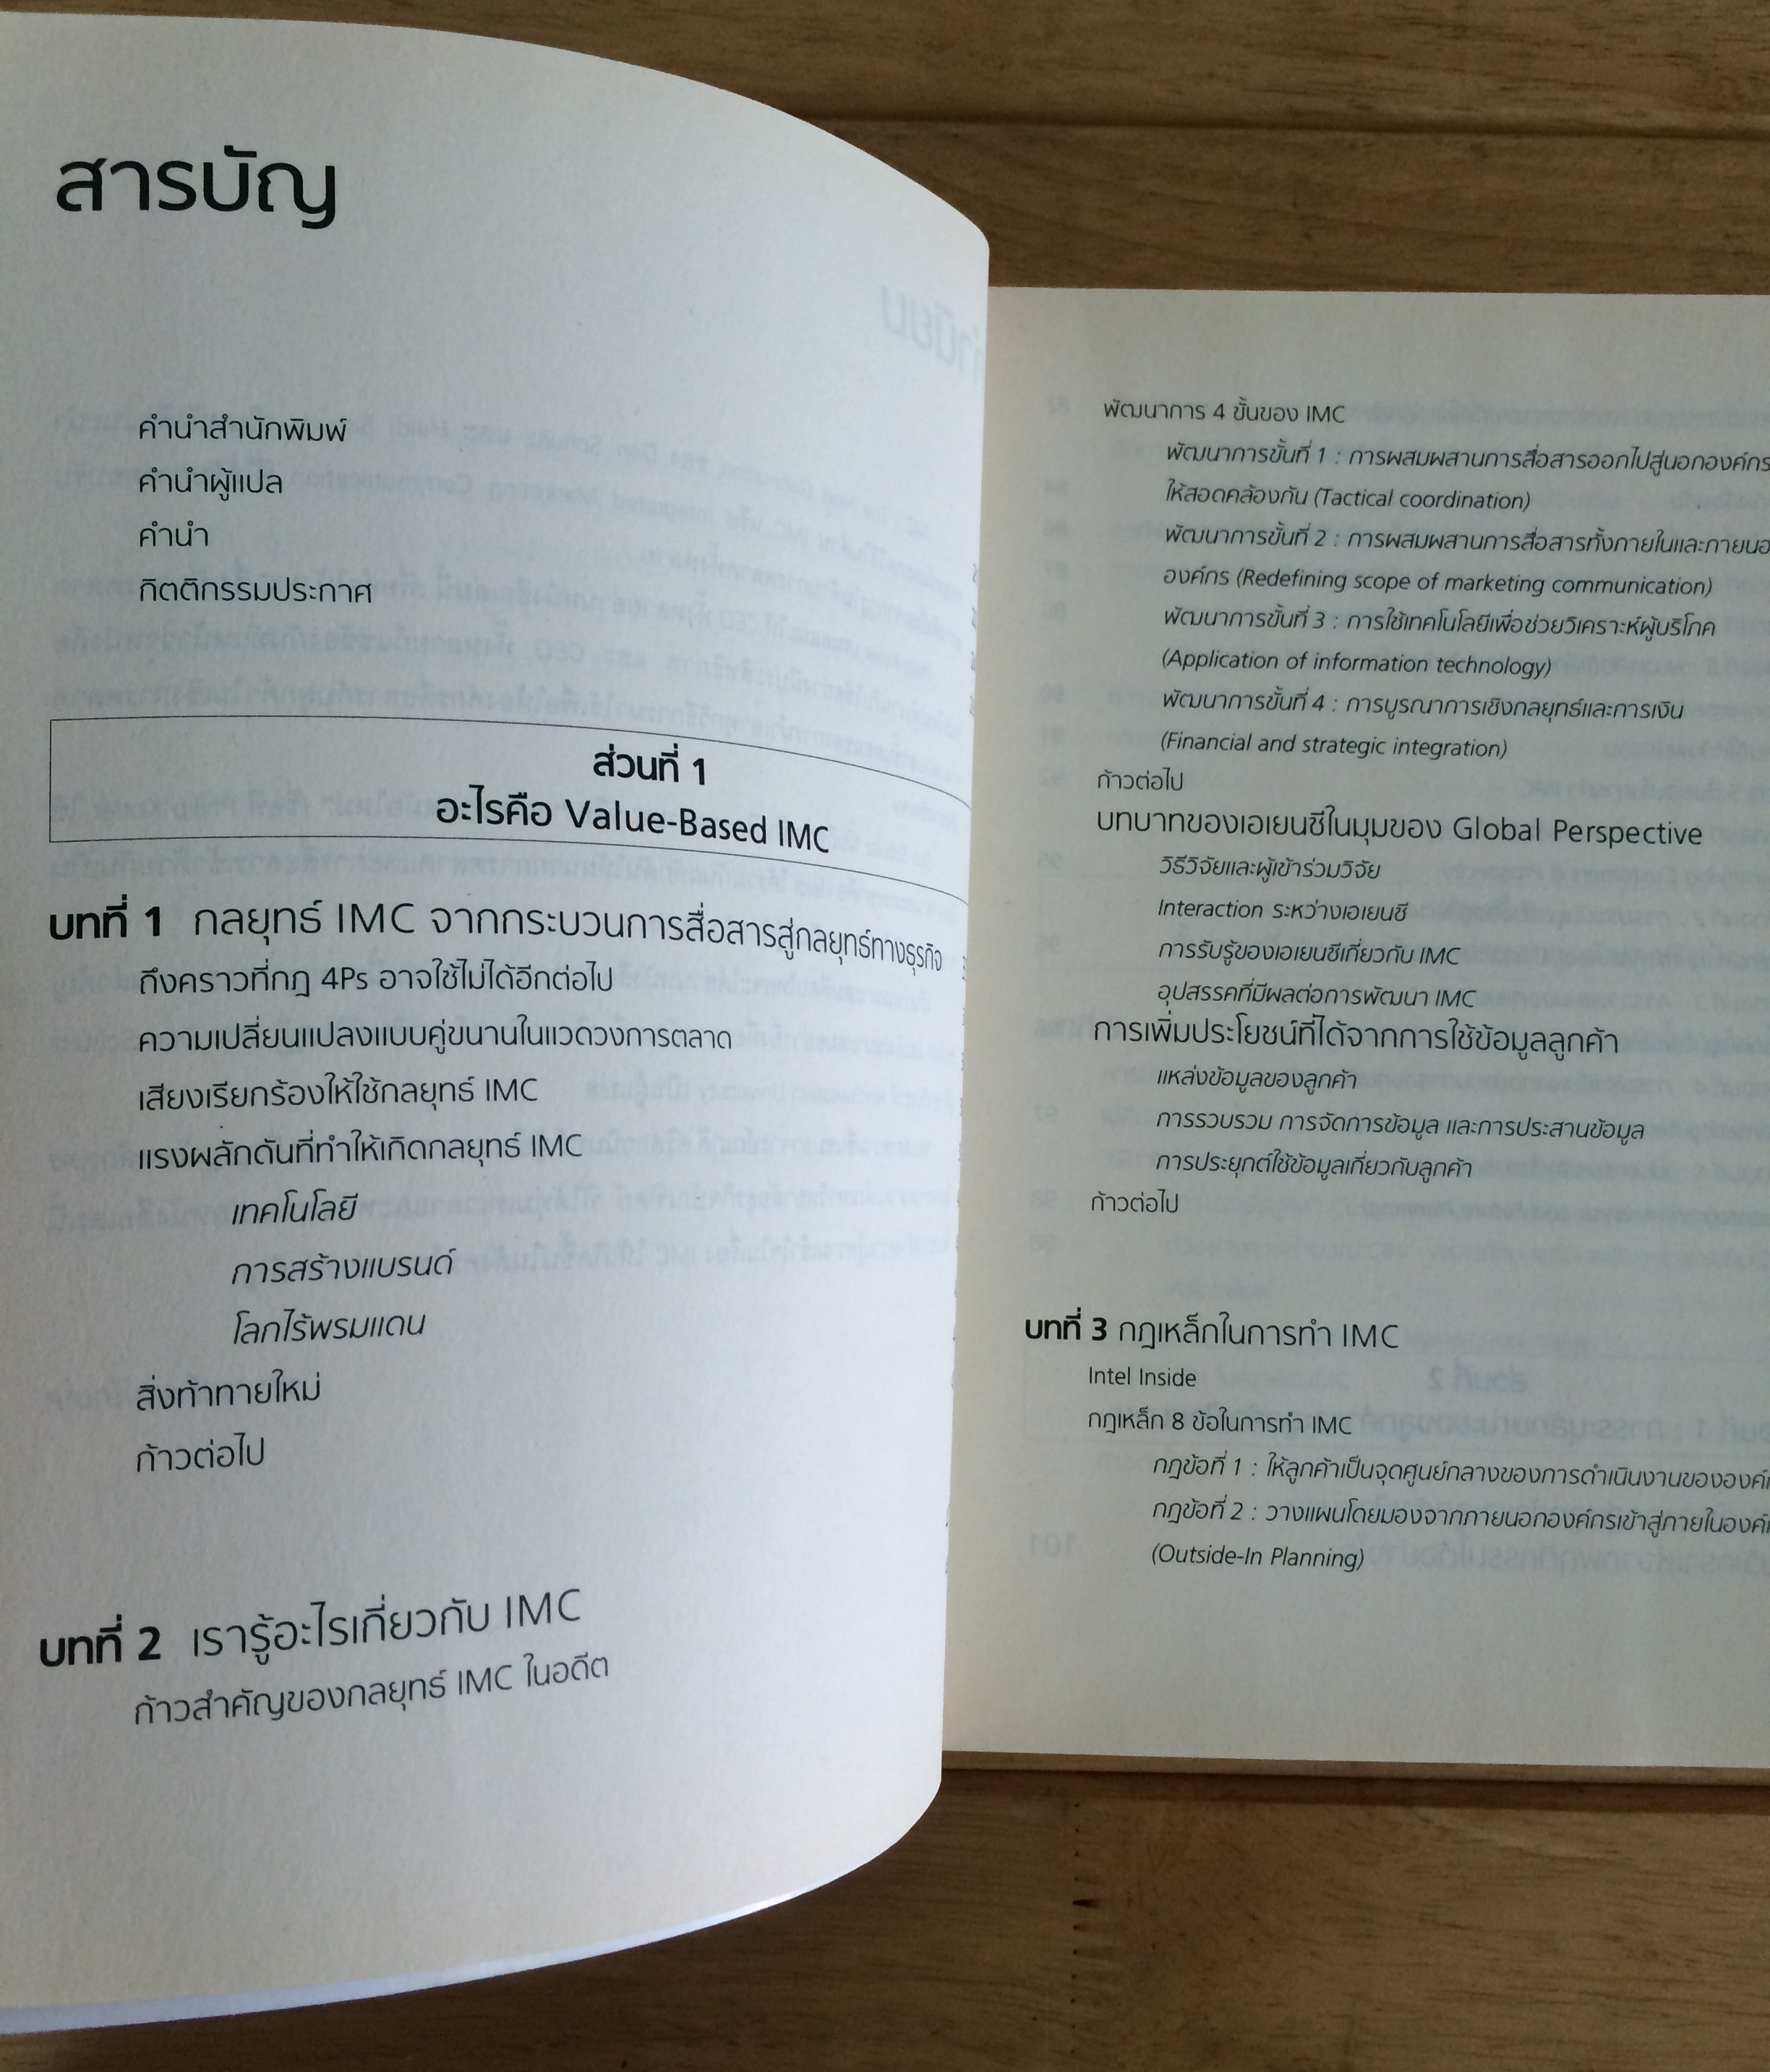 สารบัญ
คำนำสำนักพิมพ์
คำนำผู้แปล
คำนำ
กิตติกรรมประกาศ
ส่วนที่ 1
อะไรคือ Value-Based IMC
บทที่ 1 กลยุทธ์ IMC จากกระบวนการสื่อสารสู่กลยุทธ์ทางธุรกิจ
ถึงคราวที่กฎ 4Ps อาจใช้ไม่ได้อีกต่อไป
ความเปลี่ยนแปลงแบบคู่ขนานในแวดวงการตลาด
เสียงเรียกร้องให้ใช้กลยุทธ์ IMC
แรงผลักดันที่ทำให้เกิดกลยุทธ์ IMC
เทคโนโลยี
การสร้างแบรนด์
โลกไร้พรมแดน
สิ่งท้าทายใหม่
ก้าวต่อไป
บทที่ 2 เรารู้อะไรเกี่ยวกับ IMC
ก้าวสำคัญของกลยุทธ์ IMC ในอดีต
พัฒนาการ 4 ขั้นของ IMC
พัฒนาการขั้นที่ 1 : การผสมผสานการสื่อสารออกไปสู่นอกองค์กร
ให้สอดคล้องกัน (Tactical coordination)
พัฒนาการขั้นที่ 2 : การผสมผสานการสื่อสารทั้งภายในและภายนอ
องค์กร (Redefining scope of marketing communication)
พัฒนาการขั้นที่ 3 : การใช้เทคโนโลยีเพื่อช่วยวิเคราะห์ผู้บริโภค
(Application of information technology)
พัฒนาการขั้นที่ 4 : การบูรณาการเชิงกลยุทธ์และการเงิน
(Financial and strategic integration)
ก้าวต่อไป
บทบาทของเอเยนซีในมุมของ Global Perspective
วิธีวิจัยและผู้เข้าร่วมวิจัย
Interaction ระหว่างเอเยนซี
การรับรู้ของเอเยนซีเกี่ยวกับ IMC
อุปสรรคที่มีผลต่อการพัฒนา IMC
การเพิ่มประโยชน์ที่ได้จากการใช้ข้อมูลลูกค้า
แหล่งข้อมูลของลูกค้า
การรวบรวม การจัดการข้อมูล และการประสานข้อมูล
การประยุกต์ใช้ข้อมูลเกี่ยวกับลูกค้า
ก้าวต่อไป
บทที่ 3 กฎเหล็กในการทำ IMC
Intel Inside
กฎเหล็ก 8 ข้อในการทำ IMC
กฎข้อที่ 1 : ให้ลูกค้าเป็นจุดศูนย์กลางของการดำเนินงานขององค์ก
กฎข้อที่ 2 : วางแผนโดยมองจากภายนอกองค์กรเข้าสู่ภายในองค์ก
(Outside-In Planning)